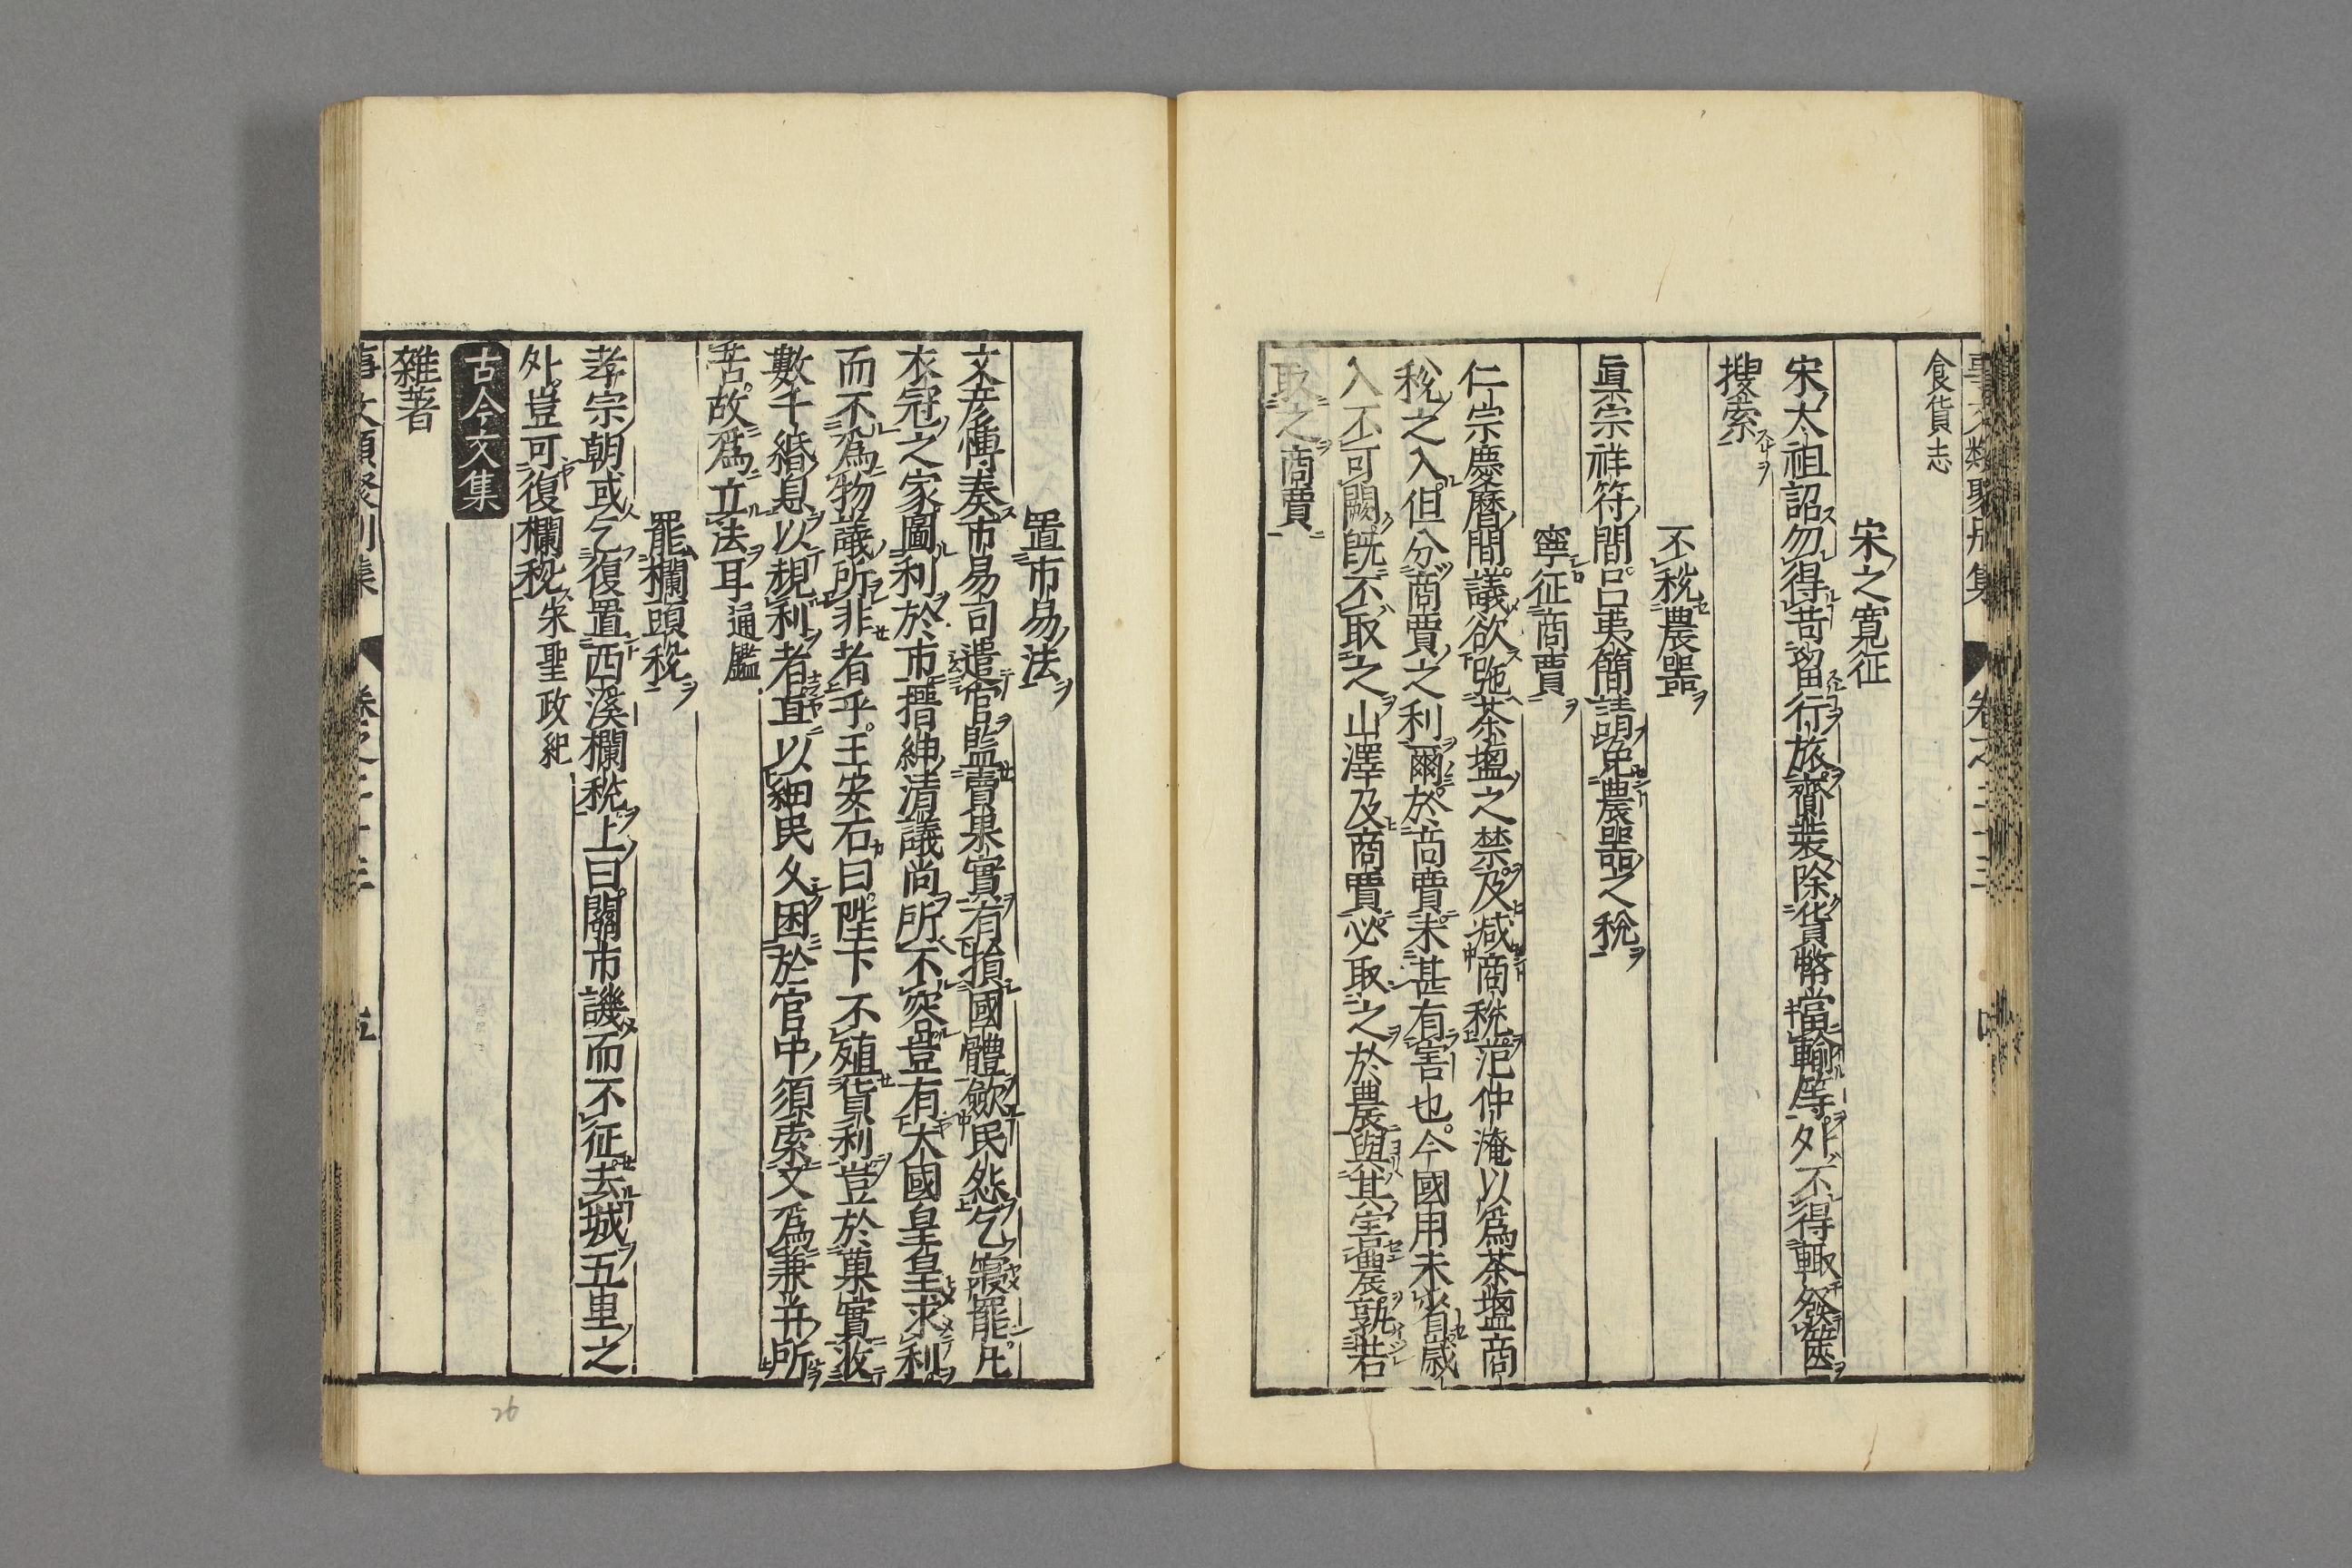 食貨志
宋之寬征
宋太祖詔勿得苛留行旅齎裝除貨幣當輸筭外不得輙發篋
搜索
不稅農噐
眞宗祥符間呂夷簡請免農噐之稅
寧征商賈
仁宗慶曆間議欲弛茶塩之禁及减商稅范仲淹以爲茶塩商
稅之入但分商賈之利爾於商賈未甚有害也今國用未省歲
入不可闕旣不取之山澤及商賈必取之於農與其害農孰若
取之商賈
置市易法
文彦愽奏市易司遣官監賣果實有損國體斂民怨乞寢罷凡
衣冠之家圖利於市搢紳清議尚所不容豈有大國皇皇求利
而不爲物議所非者乎王安石曰陛下不殖貨利豈於菓實收
數千緡息以規利者直以細民久困於官中須索又爲兼并所
苦故爲立法耳通鑑
罷欄頭稅
孝宗朝或乞復置西溪欄稅上曰關市譏而不征去城五里之
外豈可復欄稅宋聖政紀
古今文集
雜著